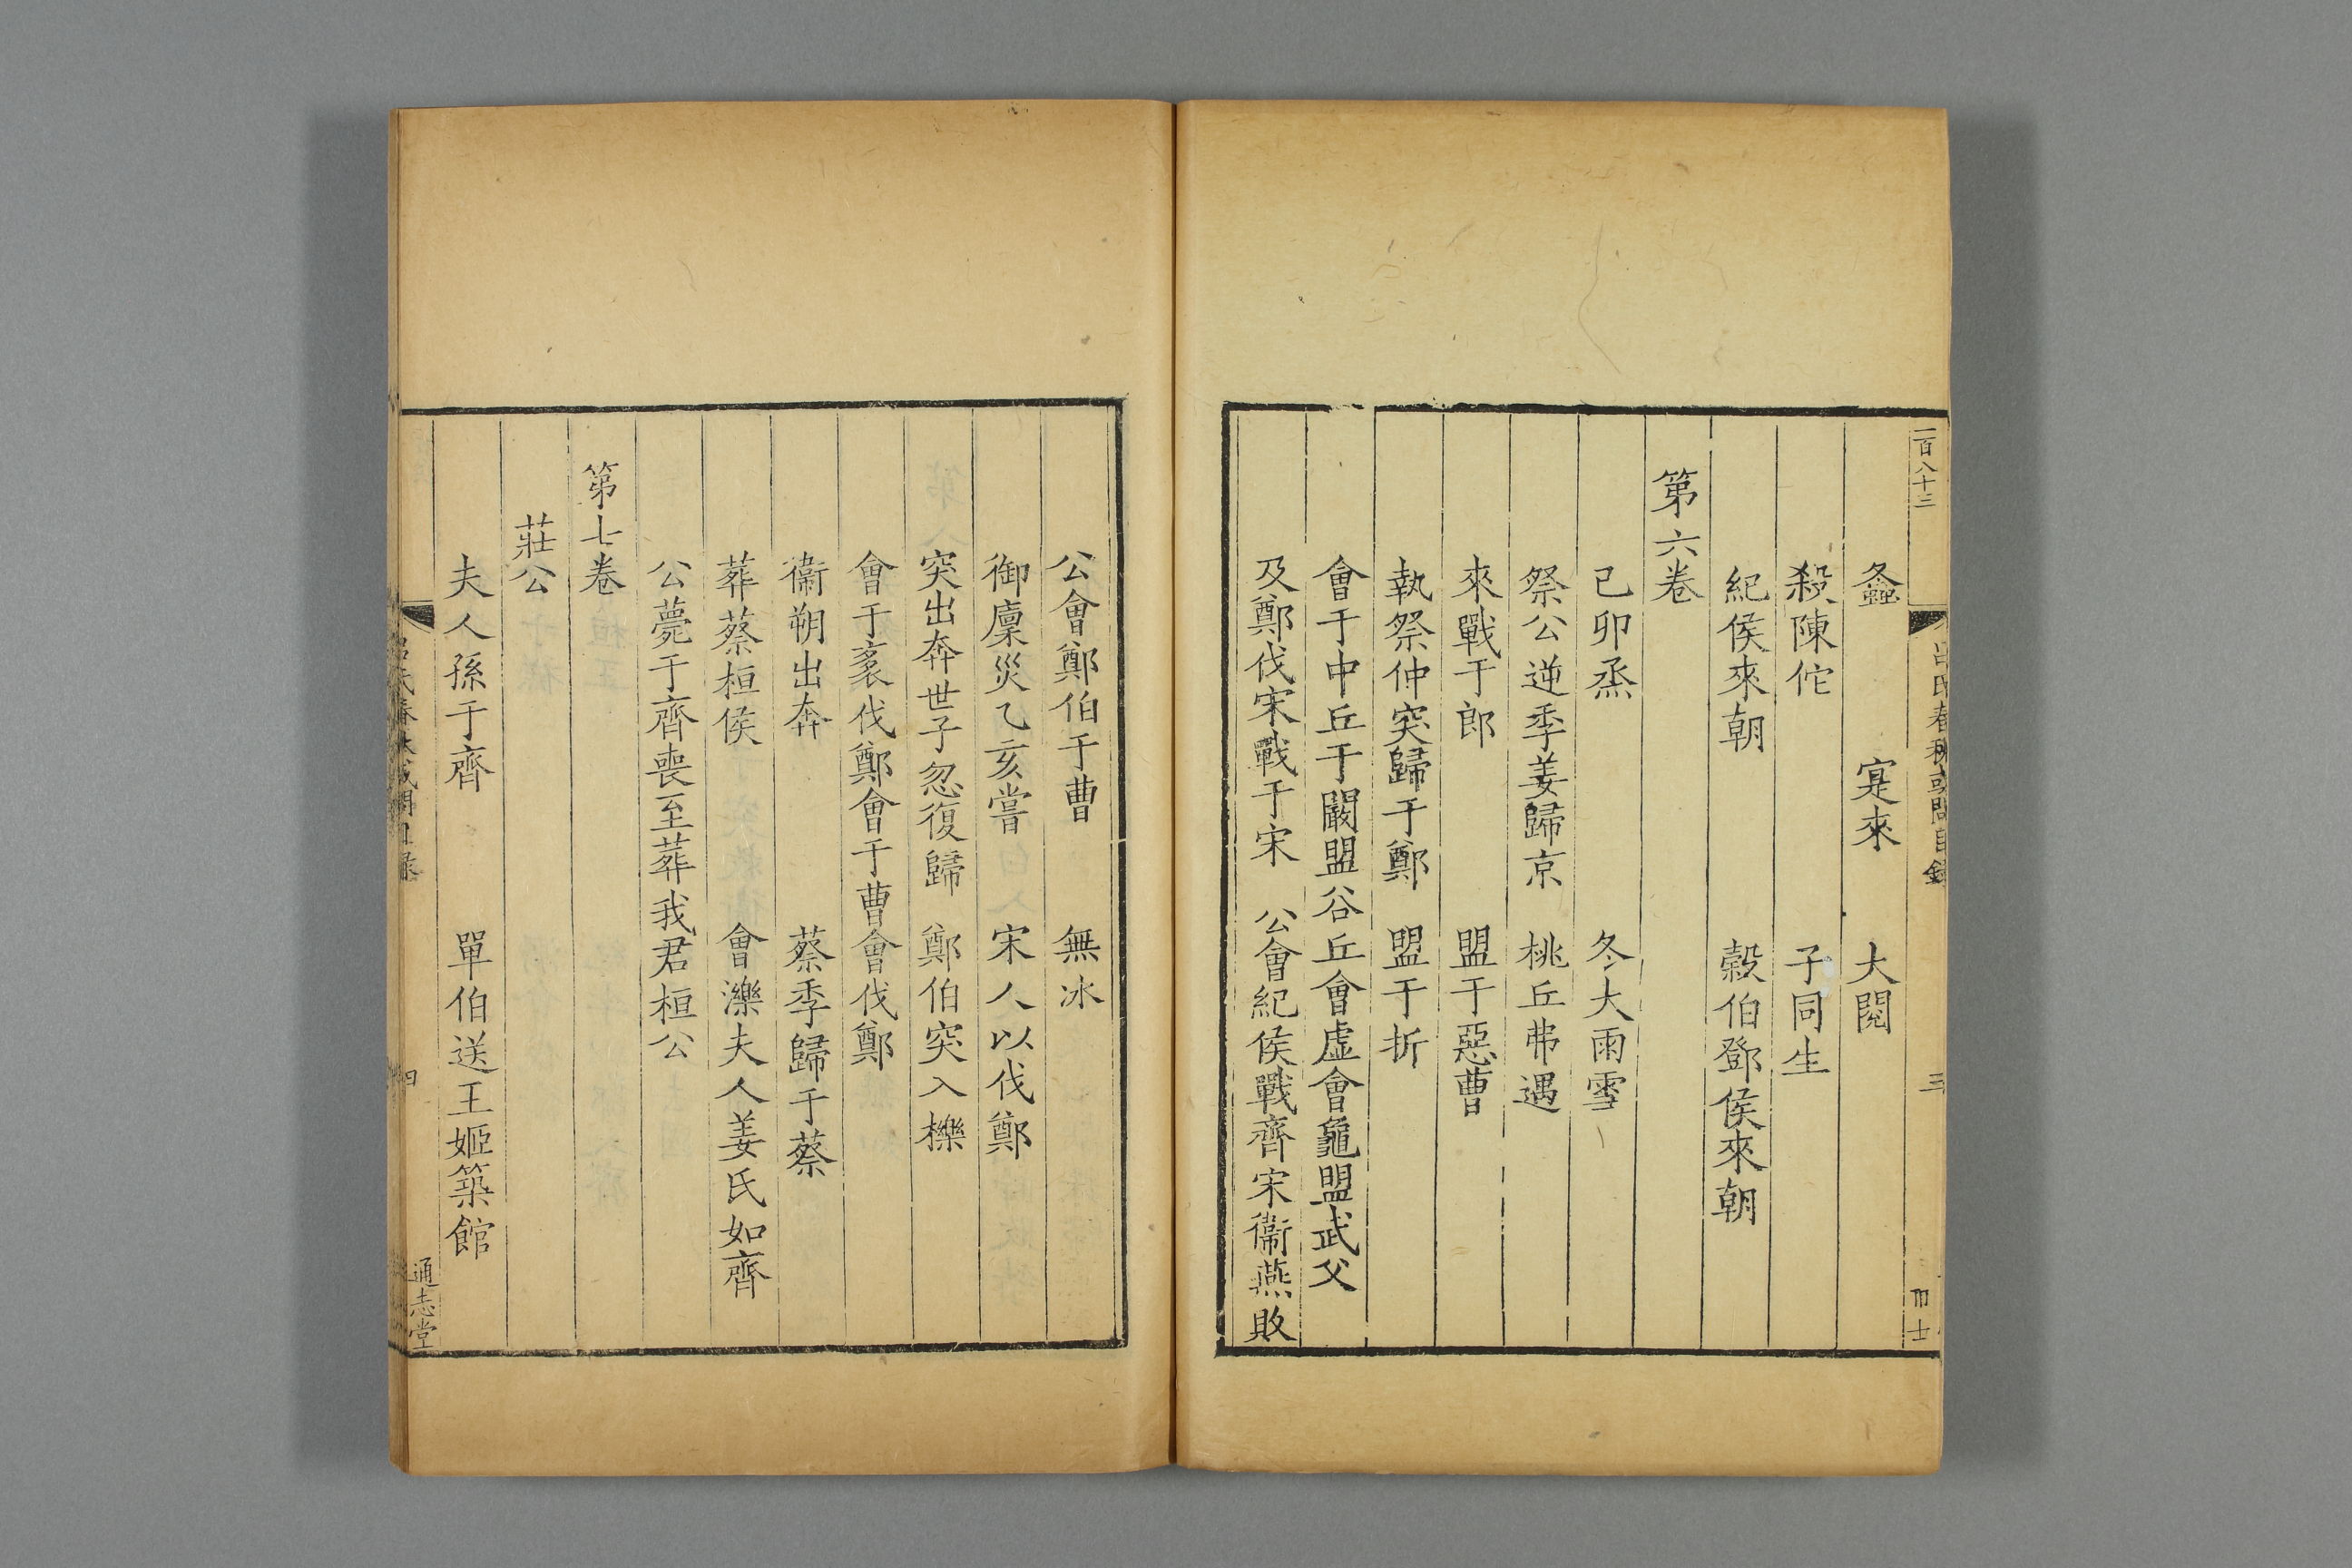 一百八十三
呂氏春秋或問目錄
三
螽 寔來 大閱
殺陳佗 子同生
紀侯來朝 榖伯鄧侯來朝
第六卷
己卯烝 冬大雨雪
祭公逆季姜歸京 桃丘弗遇
來戰于郎 盟于惡曹
執祭仲突歸于鄭 盟于折
會于中丘于闞盟谷丘會虛會龜盟武父
及鄭伐宋戰于宋 公會紀侯戰齊宋衞燕敗
公會鄭伯于曹 無冰
御廩災乙亥嘗 宋人以伐鄭
突出奔世子忽復歸 鄭伯突入櫟
會于袤伐鄭會于曹會伐鄭
衞朔出奔 蔡季歸于蔡
葬蔡桓侯 會濼夫人姜氏如齊
公薨于齊喪至葬我君桓公
第七卷
莊公
夫人孫于齊 單伯送王姬築館
呂氏春秋或問目錄
四
通志堂